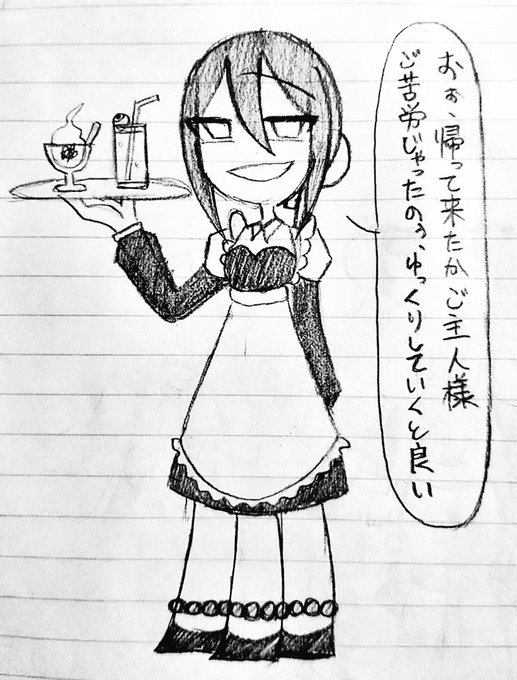 おぉ、帰って来たかご主人様
ご苦労じゃったのぅ、ゆっくりしていくと良い